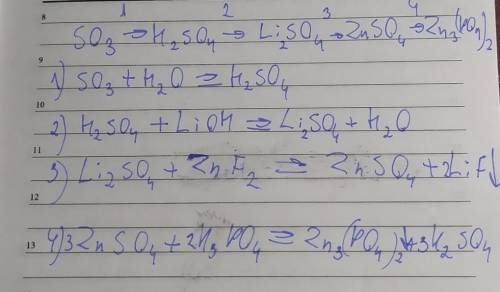 8
1 2 3 4
SO₃ → H₂SO₄ → Li₂SO₄ → ZnSO₄ → Zn₃(PO₄)₂
9
1) SO₃ + H₂O = H₂SO₄
10
2) H₂SO₄ + LiOH = Li₂SO₄ + H₂O
11
3) Li₂SO₄ + ZnF₂ = ZnSO₄ + 2LiF↓
12
13 4) 3ZnSO₄ + 2K₃PO₄ = Zn₃(PO₄)₂↓ + 3K₂SO₄